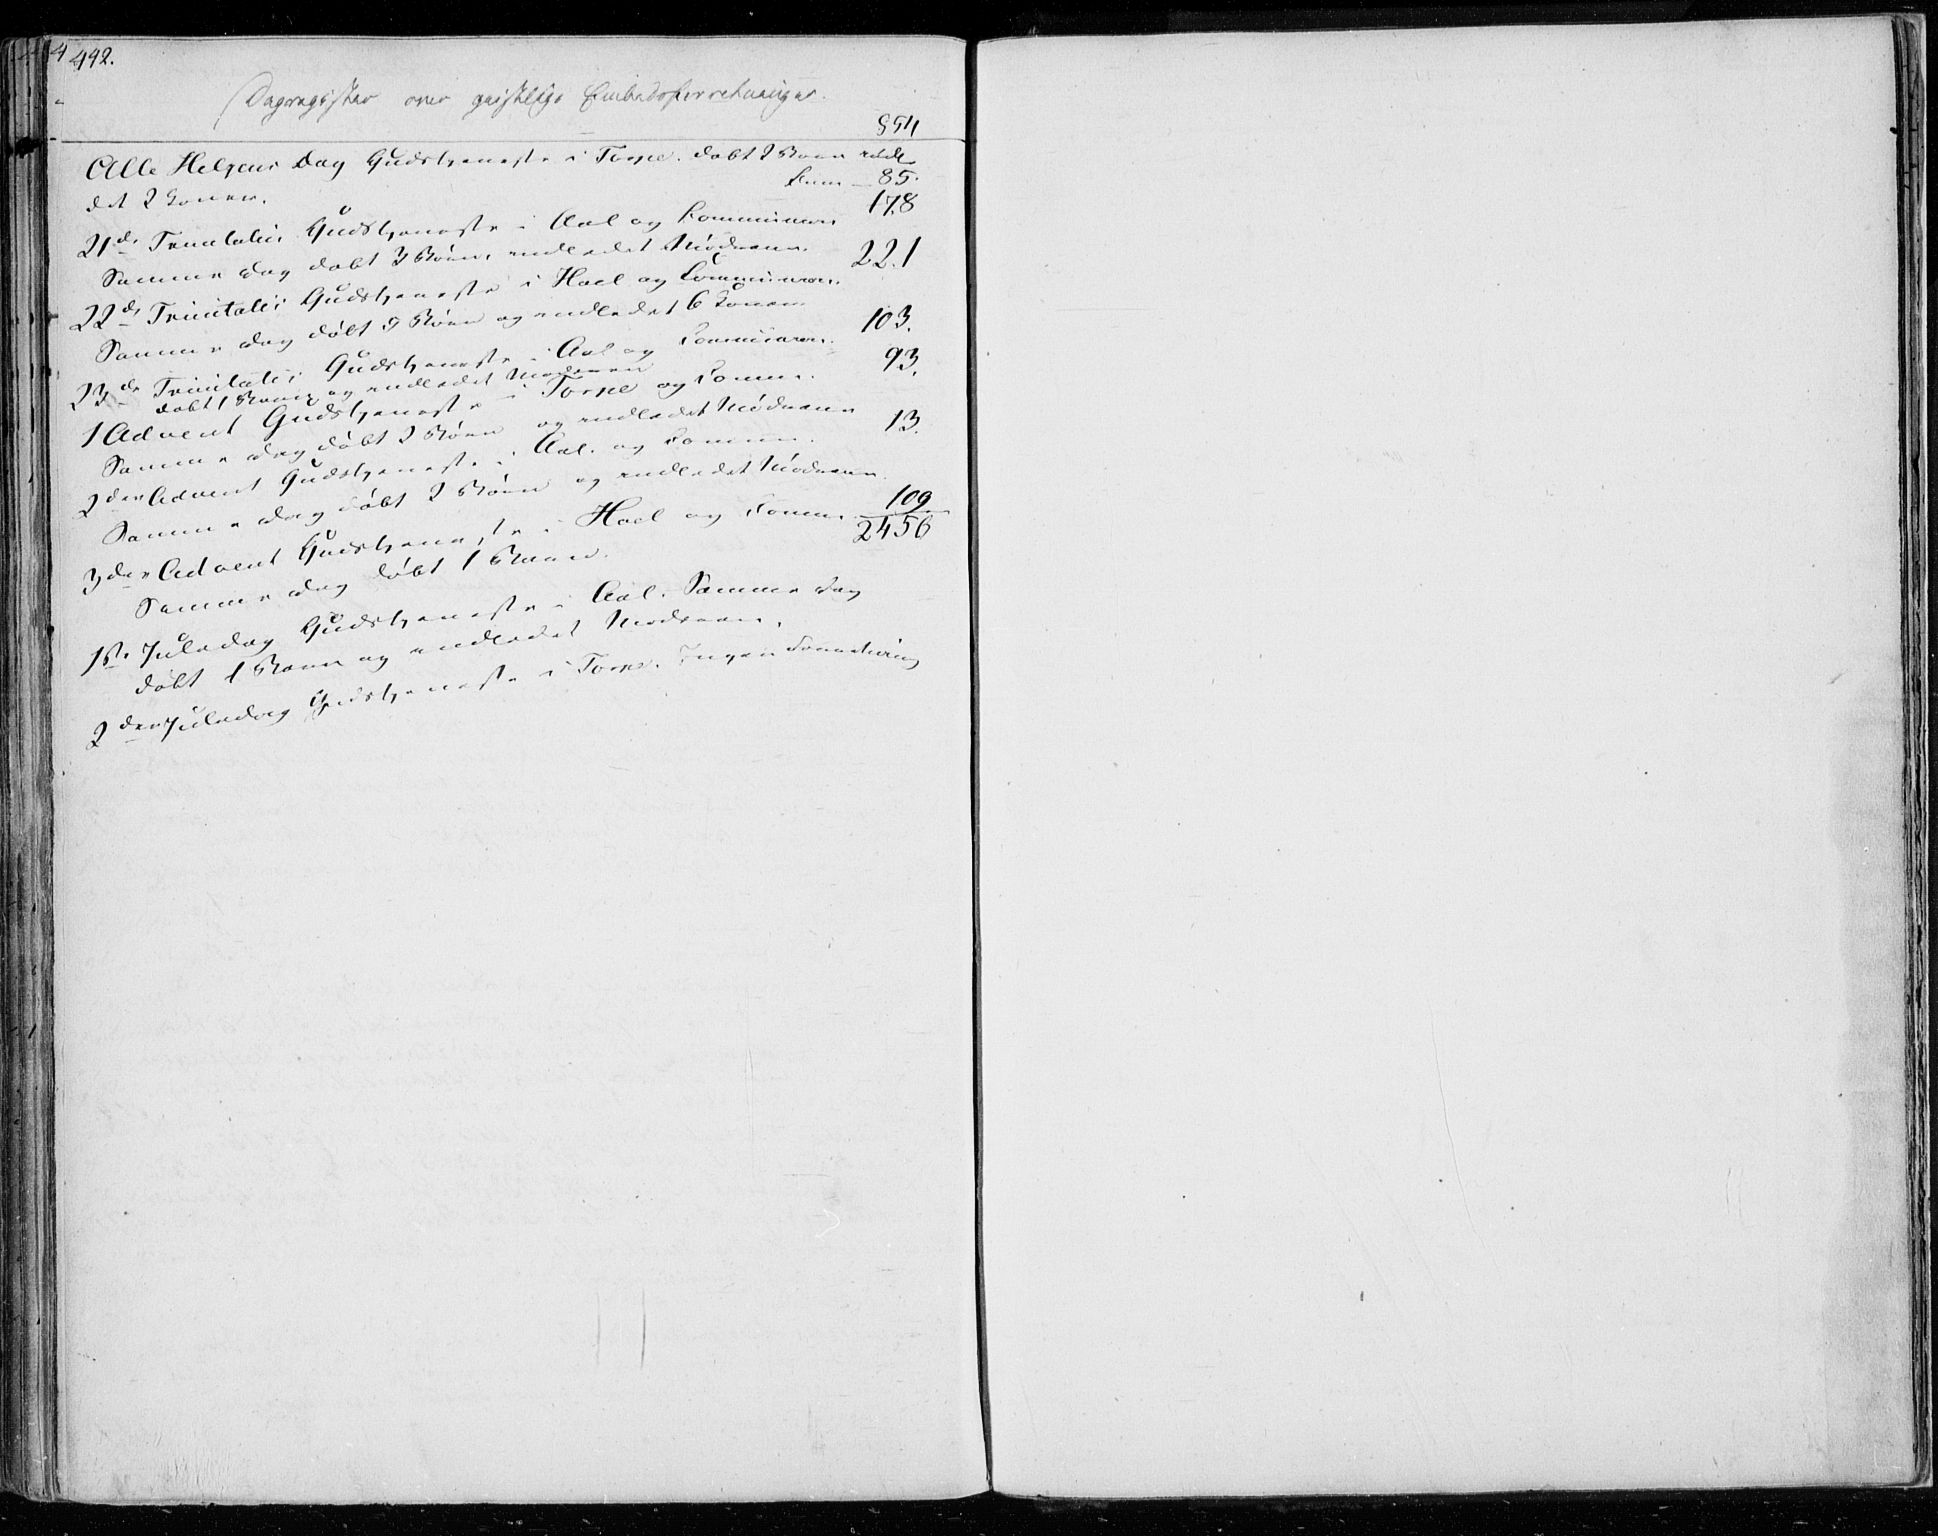 492.
Dagregister over geistlige Embedsforretninger.
Alle Helgens Dag Gudstjeneste i Torpe. døbt 2 Børn indle
det 2 Koner. Kom 85.
21de Trinitatis Gudstjeneste i Aal og Kommunion 178
Samme Dag døbt 3 Børn, indledet Mødrene.
22de Trinitatis Gudstjeneste i Hoel og Communion. 221
Samme Dag døbt Børn og indledet 6 Koner
23de Trinitatis Gudstjeneste i Aal og Communion. 103.
døbt 1 Barn og indledet Moderen
1 Advent Gudstjeneste i Torpe og Comm. 93.
Samme Dag døbt 2 Børn og indledet Mødrene
2den Advent Gudstjeneste i Aal. og Comm. 13.
Samme Dag døbt 2 Børn og indledet Mødrene.
3die Advent Gudstjeneste i Hoel og Comm. 109
2456
Samme Dag døbt 1 Barn.
1ste Juledag Gudstjeneste i Aal. Samme Dag
døbt 1 Barn og indledet Moderen.
2den Juledag Gudstjeneste i Torpe. Ingen